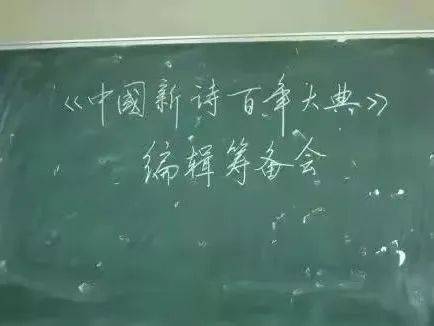 《中國新诗百年大典》
编辑筹备会